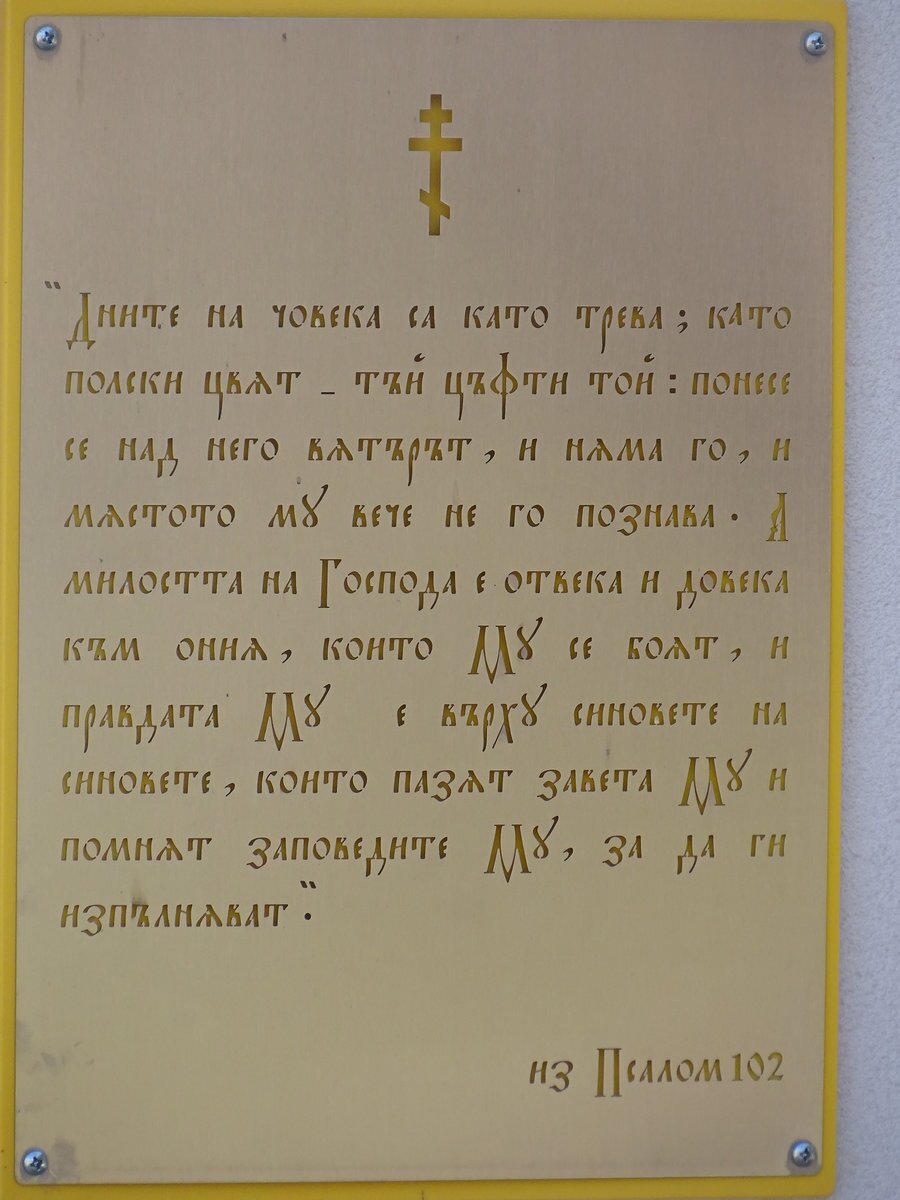 "Дните на човека са като трева; като
полски цвят - тъй цъфти той: понесе
се над него вятърът, и няма го, и
мястото му вече не го познава. А
милостта на Господа е отвека и довека
към ония, които Му се боят, и
правдата Му е върху синовете на
синовете, които пазят завета Му и
помнят заповедите Му, за да ги
изпълняват".
из Псалом 102